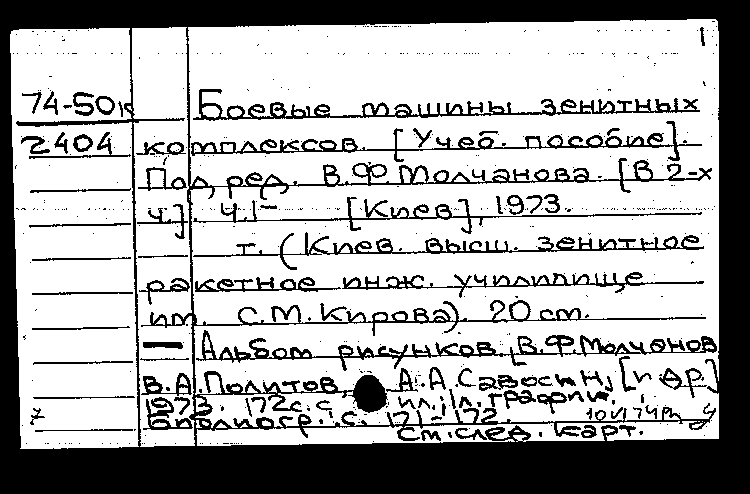 1
74-50
2404
Боевые машины зенитных
комплексов. [Учеб. пособие].
Под ред. В.Ф.Молчанова. [В 2-х
ч.]. Ч.1- [Киев], 1973.
т. (Киев. высш. зенитное
ракетное инж. училилище
им. С.М.Кирова). 20 см.
— Альбом рисунков. [В.Ф.Молчанов
В.А.Политов, А.А.Савостин, [и др.]
1973. 172с. с ил.; 1л. графич.
Библиогр.: с. 171-172.
7
см. след. карт.